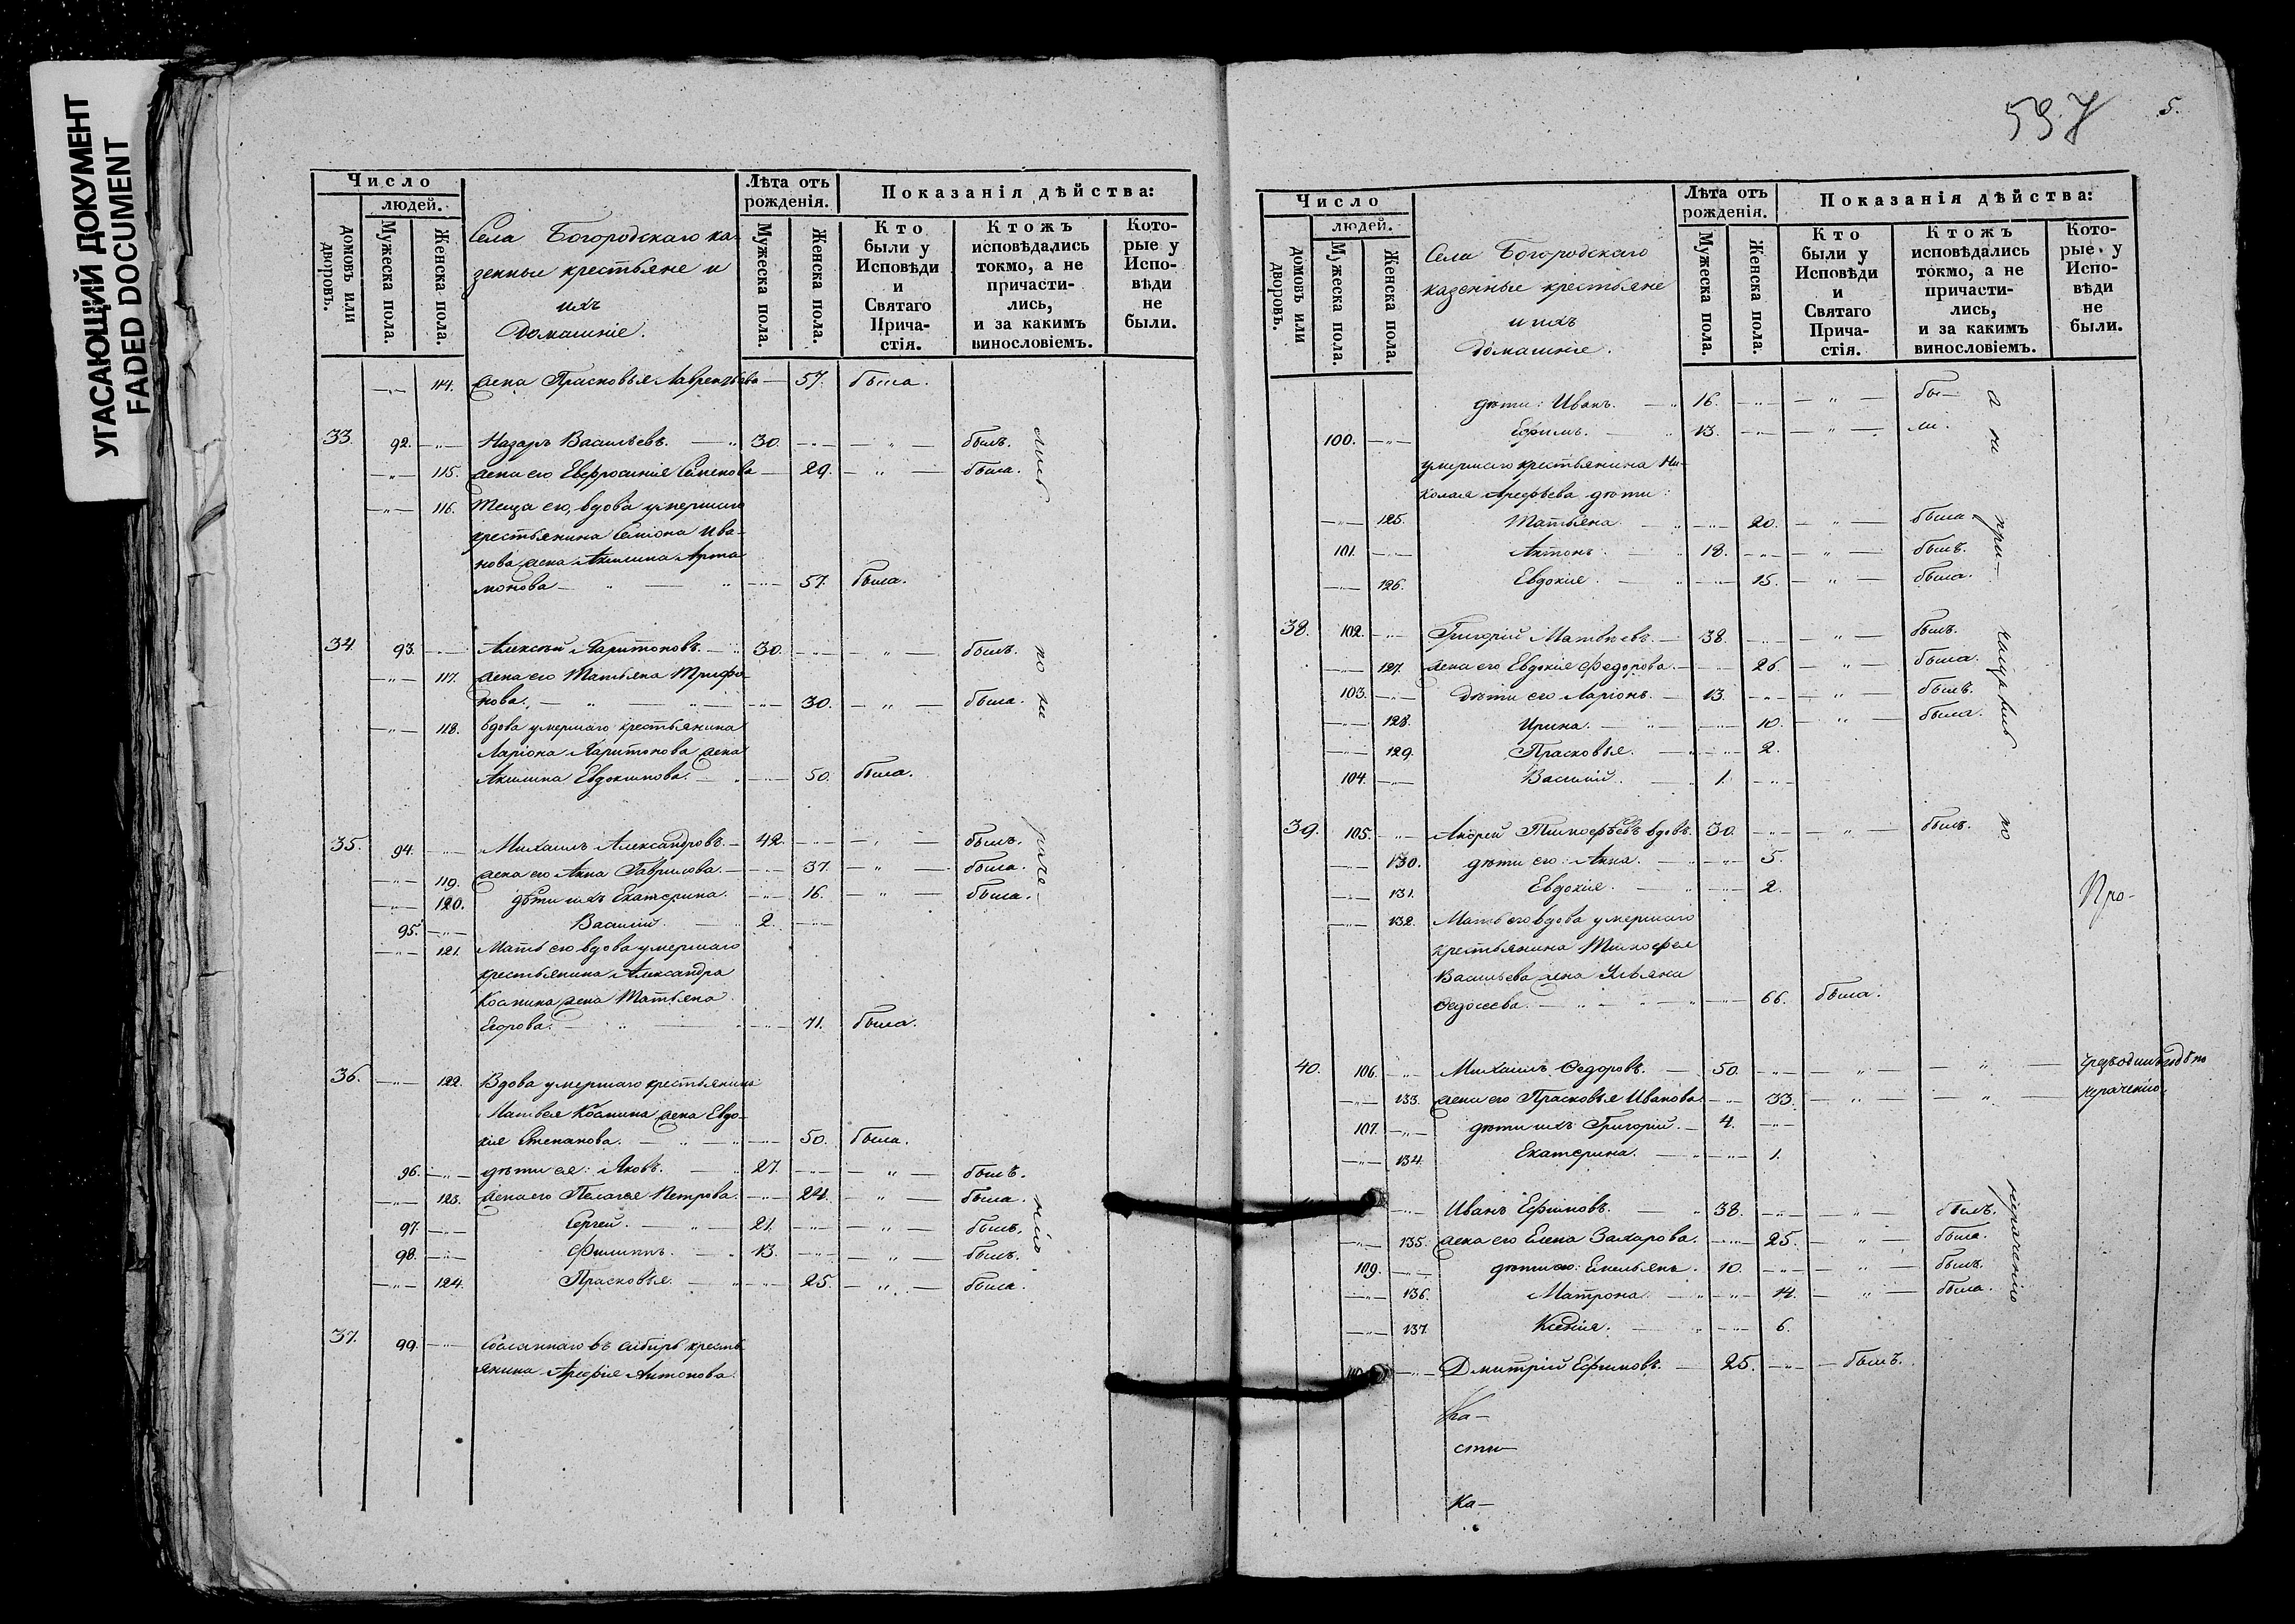 УГАСАЮЩИЙ ДОКУМЕНТ
FADED DOCUMENT
Число
людей.
домовъ или дворовъ.
Мужеска пола.
Женска пола.
Села Богородскаго ка-
зенные крестьяне и
ихъ
домашніе.
Лѣта отъ рожденія.
Мужеска пола.
Женска пола.
Показанія дѣйства:
Кто были у Исповѣди и Святаго Прича-стія.
Ктожъ исповѣдались токмо, а не причасти-лись, и за какимъ винословіемъ.
Кото-рые у Испо-вѣди не были.
—„— 114. жена Прасковья Лаврентьева — 57. была.
33. 92. —„— Назаръ Васильевъ. — „ 30. —„— — „ — былъ.
—„— 115. жена его Евфросинія Семенова — 29. — „ — была.
—„— 116. Теща его, вдова умершаго
крестьянина Семіона Ива-
нова жена Акилина Арта-
монова — „ — „ —„— 57. была.
34. 93. —„— Алексѣй Харитоновъ. — „ 30. —„— — „ — былъ. по не
—„— 117. жена его Татьяна Трифо-
нова. — „ — „ — —„— 30. — „ — была.
—„— 118. вдова умершаго крестьянина
Ларіона Харитонова жена
Акилина Евдокимова. — „ —„— 50. была.
35. 94. —„— Михаилъ Александровъ. — 42. —„— — „ — былъ. раче-
—„— 119. жена его Анна Гаврилова. — —„— 37. — „ — была.
—„— 120. дѣти ихъ Екатерина. —„— 16. — „ — была.
95. —„— Василій. — „ 2. —„—
—„— 121. Мать его вдова умершаго
крестьянина Александра
Косьмина жена Татьяна
Егорова. — „ — „ —„— 71. была.
36. —„— 122. Вдова умершаго крестьянина
Матвея Косьмина жена Евдо-
кія Степанова. — „ — „ —„— 50. была.
96. —„— дѣти ея: Яковъ. — „ 27. —„— — „ — былъ.
—„— 123. жена его Пелагея Петрова. —„— 24. — „ — была. нію
97. —„— Сергей. — „ — 21. —„— — „ — былъ.
98. —„— Филиппъ. — „ 13. —„— — „ — былъ.
—„— 124. Прасковья. — „ —„— 25. — „ — была.
37. 99. —„— Сосланнаго въ сибирь кресть-
янина Арефія Антонова.
597 5.
Число
людей.
домовъ или дворовъ.
Мужеска пола.
Женска пола.
Села Богородскаго
казенные крестьяне
и ихъ
домашніе.
Лѣта отъ рожденія.
Мужеска пола.
Женска пола.
Показанія дѣйства:
Кто были у Исповѣди и Святаго Прича-стія.
Ктожъ исповѣдались токмо, а не причасти-лись, и за какимъ винословіемъ.
Кото-рые у Испо-вѣди не были.
дѣти: Иванъ. — „ 16. —„— — „ — бы- а не
100. —„— Ефимъ. — „ 13. —„— — „ — ли.
умершаго крестьянина Ни-
колая Арефьева дѣти:
—„— 125. Татьяна. — „ —„— 20. — „ — была. при-
101. —„— Антонъ. — „ 18. —„— — „ — былъ.
—„— 126. Евдокія. — „ —„— 15. — „ — была.
38. 102. —„— Григорій Матвѣевъ. — 38. —„— — „ — былъ.
—„— 127. жена его Евдокія Федорова. — —„— 26. — „ — была.
103. —„— дѣти его Ларіонъ. — 13. —„— — „ — былъ.
—„— 128. Ирина. — „ —„— 10. — „ — была.
—„— 129. Прасковья. — „ —„— 2.
104. —„— Василій. — „ 1. —„—
39. 105. —„— Андрей Тимофѣевъ вдовъ. 30. —„— — „ — былъ. по
—„— 130. дѣти его: Анна. — „ —„— 5.
—„— 131. Евдокія. — „ —„— 2. Про-
—„— 132. Мать его вдова умершаго
крестьянина Тимофея
Васильева жена Ульяна
Федосеева. — „ — „ —„— 66. была.
40. 106. —„— Михаилъ Федоровъ. — 50. —„— — „ — — „ —
—„— 133. жена его Прасковья Иванова —„— 33. — „ — — „ — нераченію.
107. —„— дѣти ихъ Григорій. — 4. —„—
—„— 134. Екатерина. — „ —„— 1.
—„— Иванъ Ефимовъ. — „ 38. —„— — „ — былъ. нераченію
—„— 135. жена его Елена Захарова. —„— 25. — „ — была.
109. —„— дѣти его: Емельянъ. 10. —„— — „ — былъ.
—„— 136. Матрона. — „ —„— 14. — „ — была.
—„— 137. Ксенія. — „ —„— 6.
—„— Дмитрій Ефимовъ. — 25. —„— — былъ.
сти-
ка-